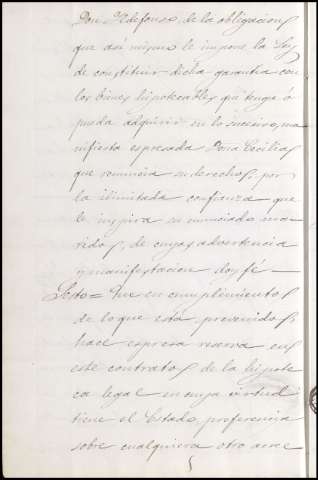 Don Ildefonso de la obligacion
que asi mismo le impone la Ley
de constituir dicha garantia con
los bienes hipotecables que tenga ó
pueda adquirir en lo sucesivo, ma
nifiesta espresada Doña Cecilia
que renuncia su derecho, por
la ilimitada confianza que
le inspira su enunciado ma
rido, de cuya advertencia
y manifestacion doy fé
Sesto= Que en cumplimiento
de lo que está prevenido,
hace expresa reserva en
este contrato de la hipote
ca legal en cuya virtud
tiene el Estado, preferencia
sobre cualquiera otro acree